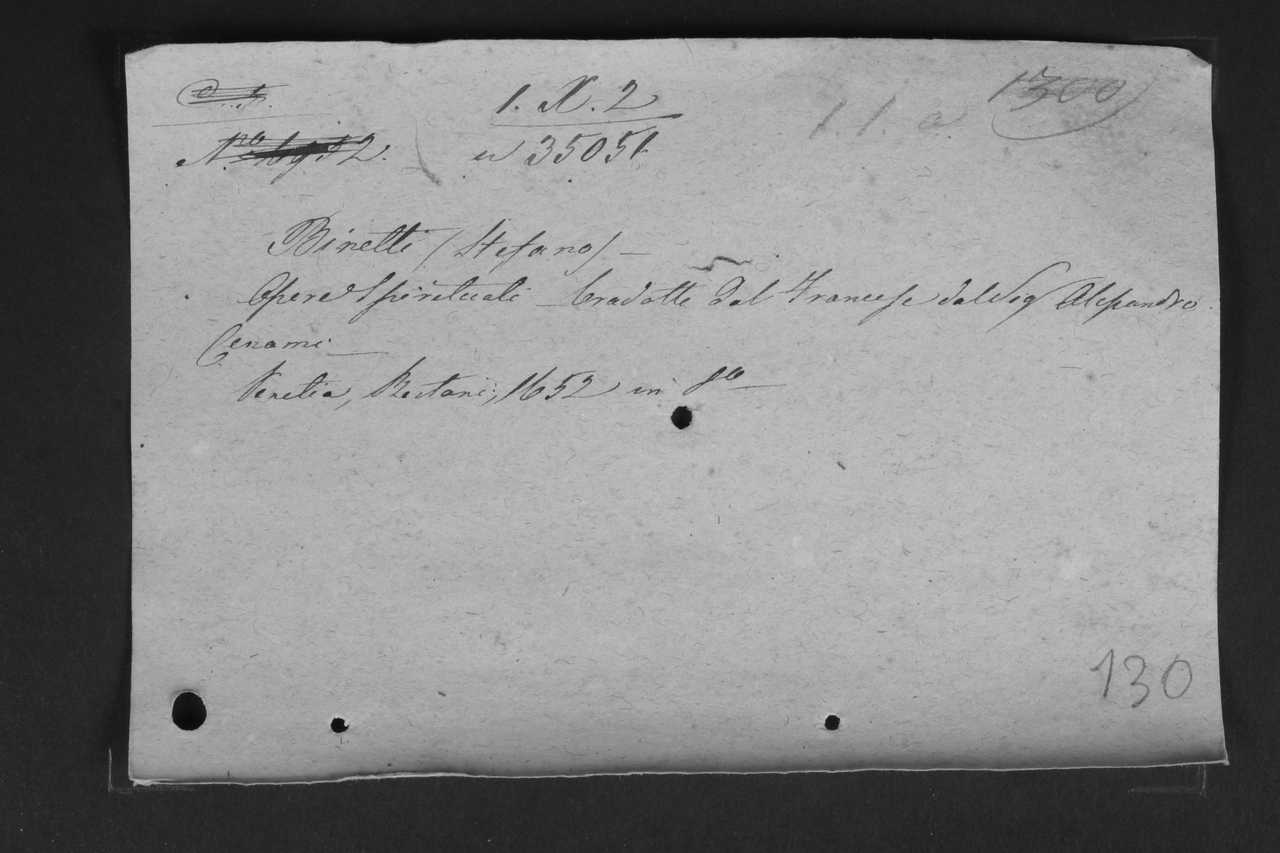 1. X. 2
1300
1. 1. a
n 35051
Binetti (Stefano) —
Opere Spirituali tradotte dal Francese dal Sig Alessandro
Cenami —
Venetia, Bertani, 1652 in 8o —
130